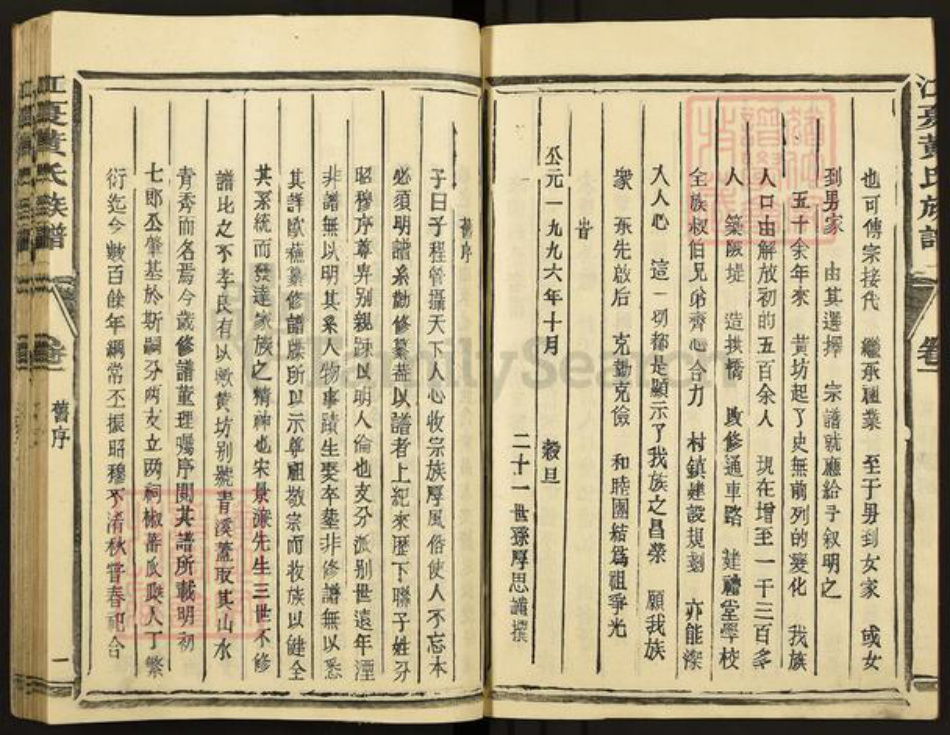 江夏黃氏族譜
卷一
也可傳宗接代 繼承祖業 至于男到女家 或女
到男家 由其選擇 宗譜就應給予叙明之
五十余年來 黃坊起了史無前列的變化 我族
人口由解放初的五百余人 現在增至一千三百多
人 築陂堤 造拱橋 改修通車路 建禮堂學校
全族叔伯兄弟齊心合力 村鎮建設規劃 亦能深
入人心 這一切都是顯示了我族之昌榮 願我族
衆 承先啟后 克勤克儉 和睦團結爲祖爭光
旹
公元一九九六年十月 穀旦
二十一世孫厚思謹撰
舊序
子曰子程管攝天下人心收宗族厚風俗使人不忘本
必須明譜系勤修纂葢以譜者上紀來歷下聯子姓分
昭穆序尊卑别親踈以明人倫也支分派别世遠年湮
非譜無以明其系人物事蹟生娶卒塟非修譜無以悉
其詳歐蘓纂修譜牒所以示尊祖敬宗而收族以健全
其系統而發達家族之精神也宋景濂先生三世不修
譜比之不孝良有以歟黃坊别號青溪蓋取其山水
青秀而名焉今歲修譜董理囑序閲其譜所載明初
七郎公肇基於斯嗣分两支立两祠椒蕃瓜瓞人丁繁
衍迄今數百餘年綱常丕振昭穆不淆秋甞春祀合
江夏黃氏族譜
卷一
舊序
一
FamilySearch